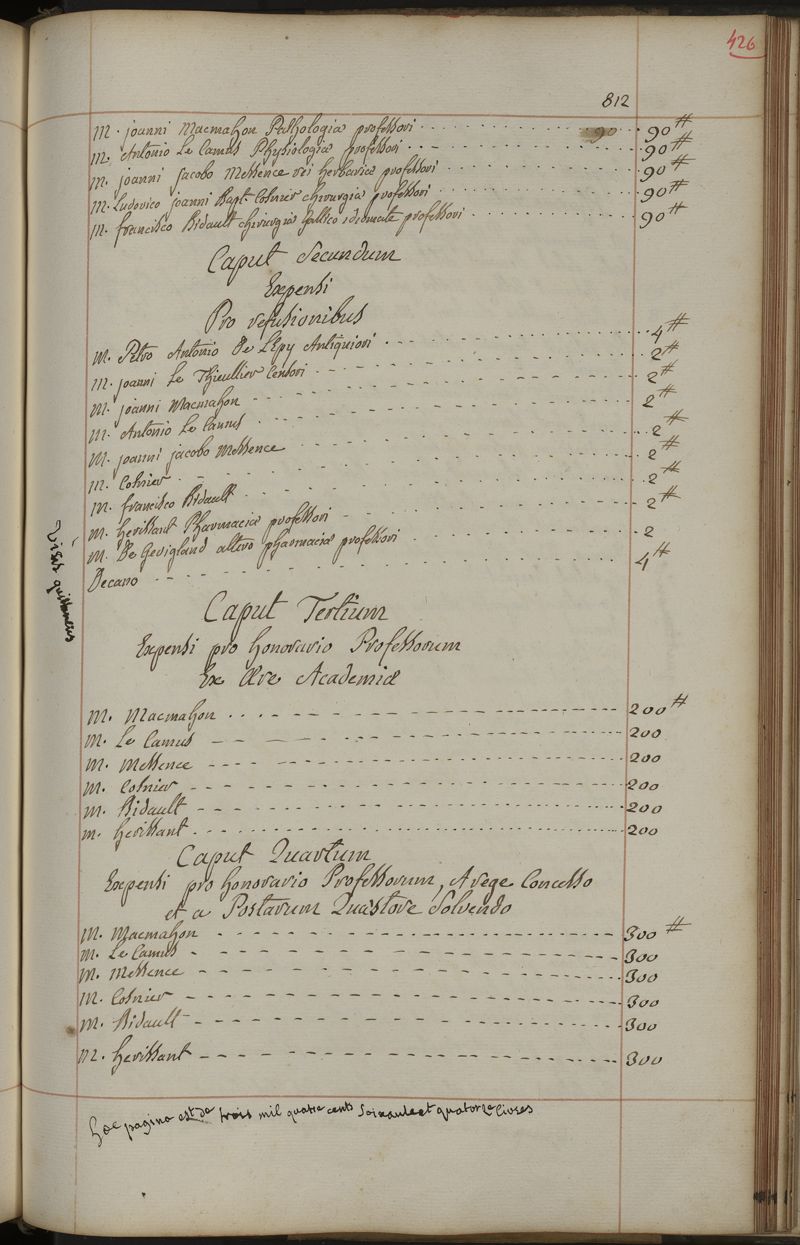 426
812
M. joanni Macmahon Pathologiæ professori 90 90 ₶
M. Antonio Le Camus Physiologiæ professori 90 ₶
M. joanni jacobo Messence rei herbariæ professori 90 ₶
M. Ludovico joanni Bapt. Cosnier chirurgiæ professori 90 ₶
M. francisco Bidault chirurgiæ gallico idiomate professori 90 ₶
Caput Secundum
Expensi
Pro refusionibus
M. Petro Antonio De L'Epy Antiquiori 4 ₶
M. joanni Le Thieullier Censori 2 ₶
M. joanni Macmahon 2 ₶
M. Antonio Le Camus 2 ₶
M. joanni jacobo Messence 2 ₶
M. Cosnier 2 ₶
M. francisco Bidault 2 ₶
M. herissant Pharmaciæ professori 2 ₶
M. De Gevigland altero pharmaciæ professori 2
Decano 4 ₶
visis quittanciis
Caput Tertium
Expensi pro honorario Professorum
Ex Ære Academiæ
M. Macmahon 200 ₶
M. Le Camus 200
M. Messence 200
M. Cosnier 200
M. Bidault 200
M. herissant 200
Caput Quartum
Expensi pro honorario Professorum, A rege Concesso
et a Postarum Quæstore Solvendo
M. Macmahon 300 ₶
M. Le Camus 300
M. Messence 300
M. Cosnier 300
M. Bidault 300
M. herissant 300
hæc pagina est de trois mil quatre cents Soixante et quatorze livres